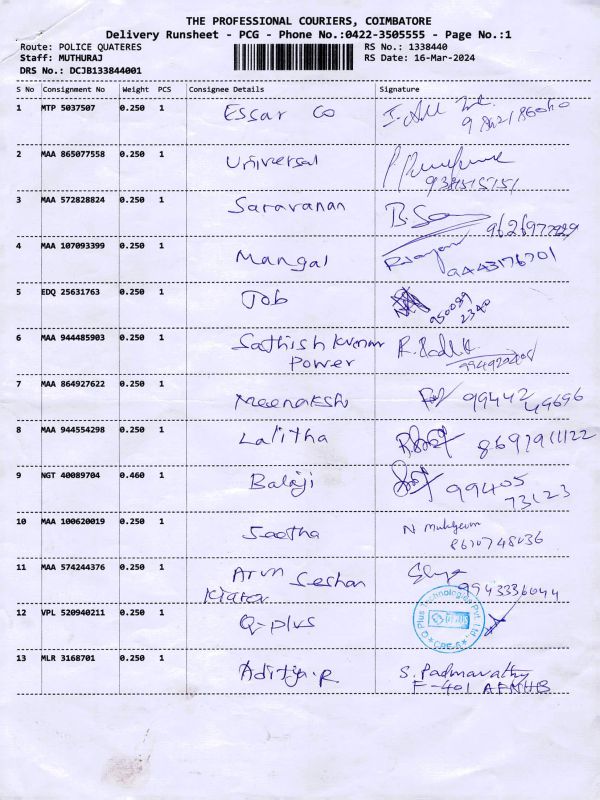 THE PROFESSIONAL COURIERS, COIMBATORE
Delivery Runsheet - PCG - Phone No.:0422-3505555 - Page No.:1
Route: POLICE QUATERES RS No.: 1338440
Staff: MUTHURAJ RS Date: 16-Mar-2024
DRS No.: DCJB133844001
S No Consignment No Weight PCS Consignee Details Signature
1 MTP 5037507 0.250 1 Essar Co
2 MAA 865077558 0.250 1 Universal
3 MAA 572828824 0.250 1 Saravanan
4 MAA 107093399 0.250 1 Mangal
9443176701
5 EDQ 25631763 0.250 1 Job
950089
2340
6 MAA 944485903 0.250 1 Sathish Kumar
Power
7 MAA 864927622 0.250 1 Meenakshi 99442
49696
8 MAA 944554298 0.250 1 Lalitha
9 NGT 40089704 0.460 1 Balaji 99405
73123
10 MAA 100620019 0.250 1 Saatha N
8610748036
11 MAA 574244376 0.250 1 Arun Seshan
9943336044
12 VPL 520940211 0.250 1 Q-plus
Q Plus Technologies Pvt Ltd
CBE-6
13 MLR 3168701 0.250 1 Aditya.R S. Padmavathy
F-401 AFNHB